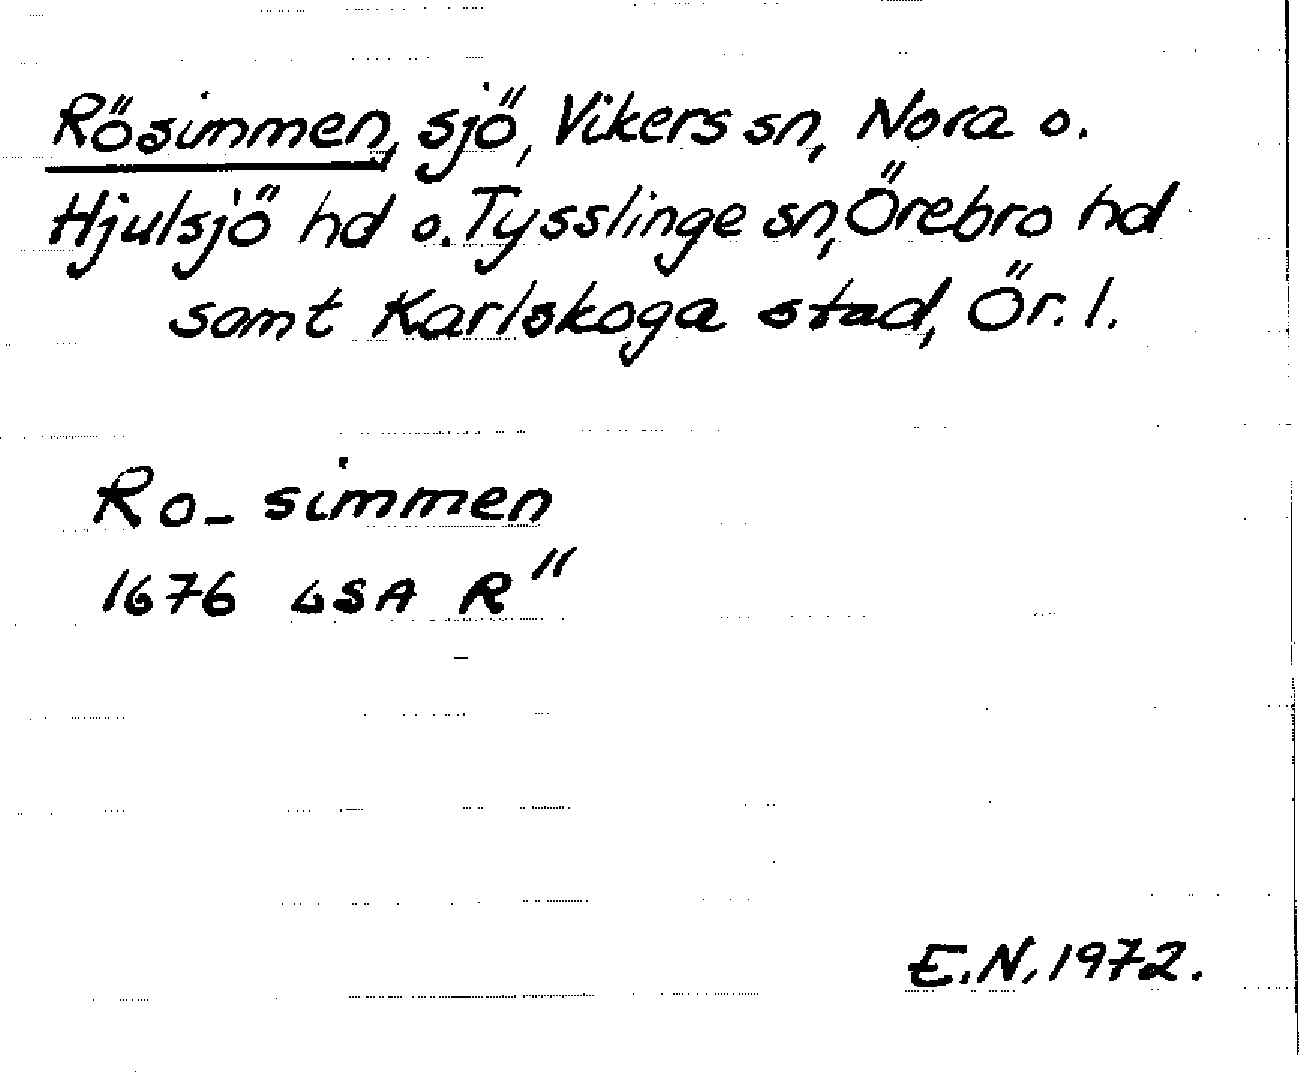 Rösimmen, sjö, Vikers sn, Nora o.
Hjulsjö hd o. Tysslinge sn, Örebro hd
samt Karlskoga stad, Ör. l.
Ro - simmen
1676 LSA R"
E.N. 1972.